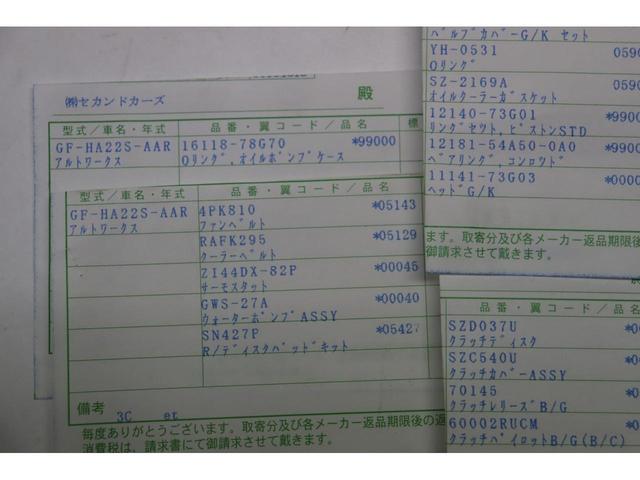 ㈱セカンドカーズ 殿
型式／車名・年式 品番・翼コード／品名 標
GF-HA22S-AAR 16118-78G70 *99000
アルトワークス Oリング,オイルポンプケース
型式/車名・年式 品番・翼コード／品名
GF-HA22S-AAR 4PK810 *05143
アルトワークス ファンベルト
RAFK295 *05129
クーラーベルト
ZI44DX-82P *00045
サーモスタット
GWS-27A *00040
ウォーターポンプASSY
SN427P *05427
R/ディスクパッドキット
備考 3C et
毎度ありがとうございます。取寄分及び各メーカー返品期限後の返
消費税は、請求書にて御請求させて戴きます。
バルブカバーG/K セット
YH-0531 0590
Oリング
SZ-2169A 0590
オイルクーラーガスケット
12140-73G01 *9900
リングセツト,ピストンSTD
12181-54A50-0A0 *9900
ベアリング,コンロツド
11141-73G03 *0000
ヘッドG/K
ます。取寄分及び各メーカー返品期限
御請求させて戴きます。
品番・翼コード／品名
SZD037U *0
クラッチディスク
SZC540U *0
クラッチカバーASSY
70145 *0
クラッチレリーズB/G
60002RUCM *0
クラッチパイロットB/G(B/C)